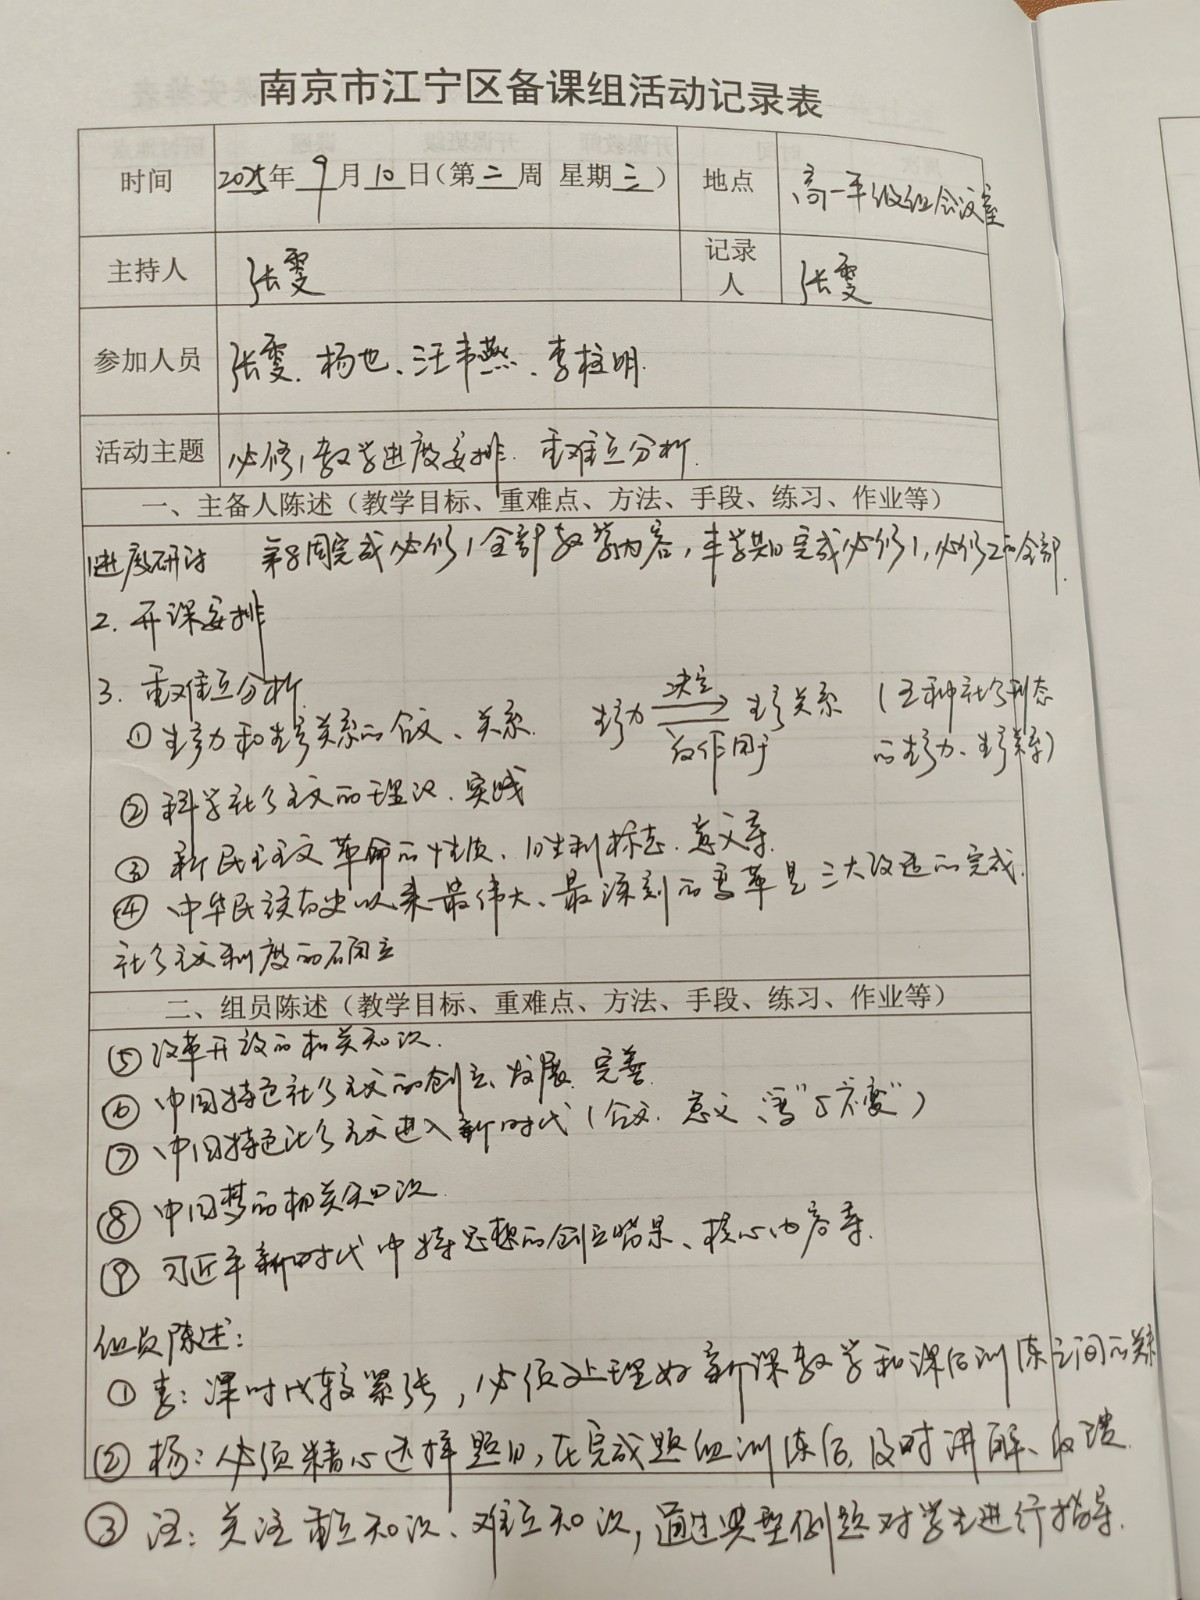 南京市江宁区备课组活动记录表
时间 2025年 9月 10日(第二周 星期三) 地点 高一年级组会议室
主持人 张雯 记录人 张雯
参加人员 张雯、杨也、汪韦燕、李柱明.
活动主题 必修1教学进度安排、重难点分析.
一、主备人陈述(教学目标、重难点、方法、手段、练习、作业等)
1进度研讨 第8周完成必修1全部教学内容,本学期完成必修1,必修2的全部.
2. 开课安排
3. 重难点分析
①生产力和生产关系的含义、关系. 生产力 决定 生产关系 (五种社会形态
反作用于 的生产力、生产关系)
②科学社会主义的理论、实践
③新民主主义革命的性质、胜利标志、意义等.
④中华民族有史以来最伟大、最深刻的变革是三大改造的完成.
社会主义制度的确立
二、组员陈述(教学目标、重难点、方法、手段、练习、作业等)
⑤改革开放的相关知识.
⑥中国特色社会主义的创立、发展、完善
⑦中国特色社会主义进入新时代(含义、意义、“不变”)
⑧中国梦的相关知识
⑨习近平新时代中特思想的创立背景、核心内容等.
组员陈述:
①李:课时比较紧张,必须处理好新课教学和课后训练之间的关系
②杨:必须精心选择题目,在完成题组训练后,及时讲解、反馈.
③汪:关注重点知识、难点知识,通过典型例题对学生进行指导.